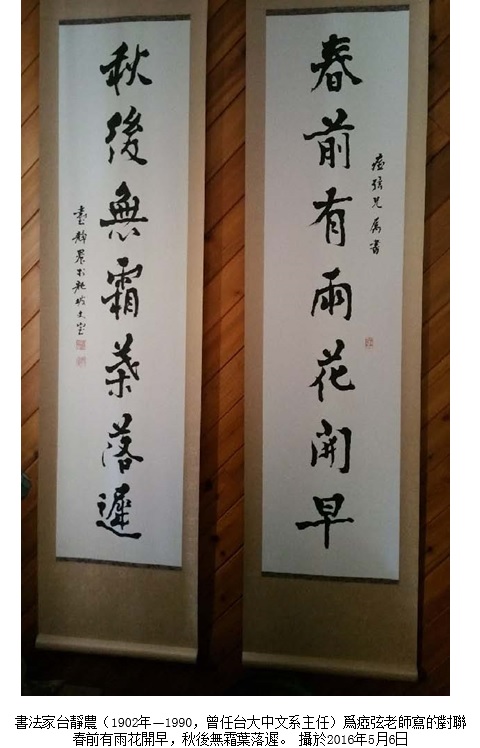 春前有雨花開早
瘂弦兄屬書
秋後無霜葉落遲
臺靜農於龍坡丈室
書法家台靜農（1902年—1990，曾任台大中文系主任）爲瘂弦老師寫的對聯
春前有雨花開早，秋後無霜葉落遲。 攝於2016年5月6日